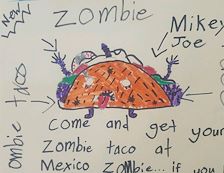 New
zombie
Mikey
Joe
ombie tacos
come and get your
zombie taco at
Mexico Zombie... if you